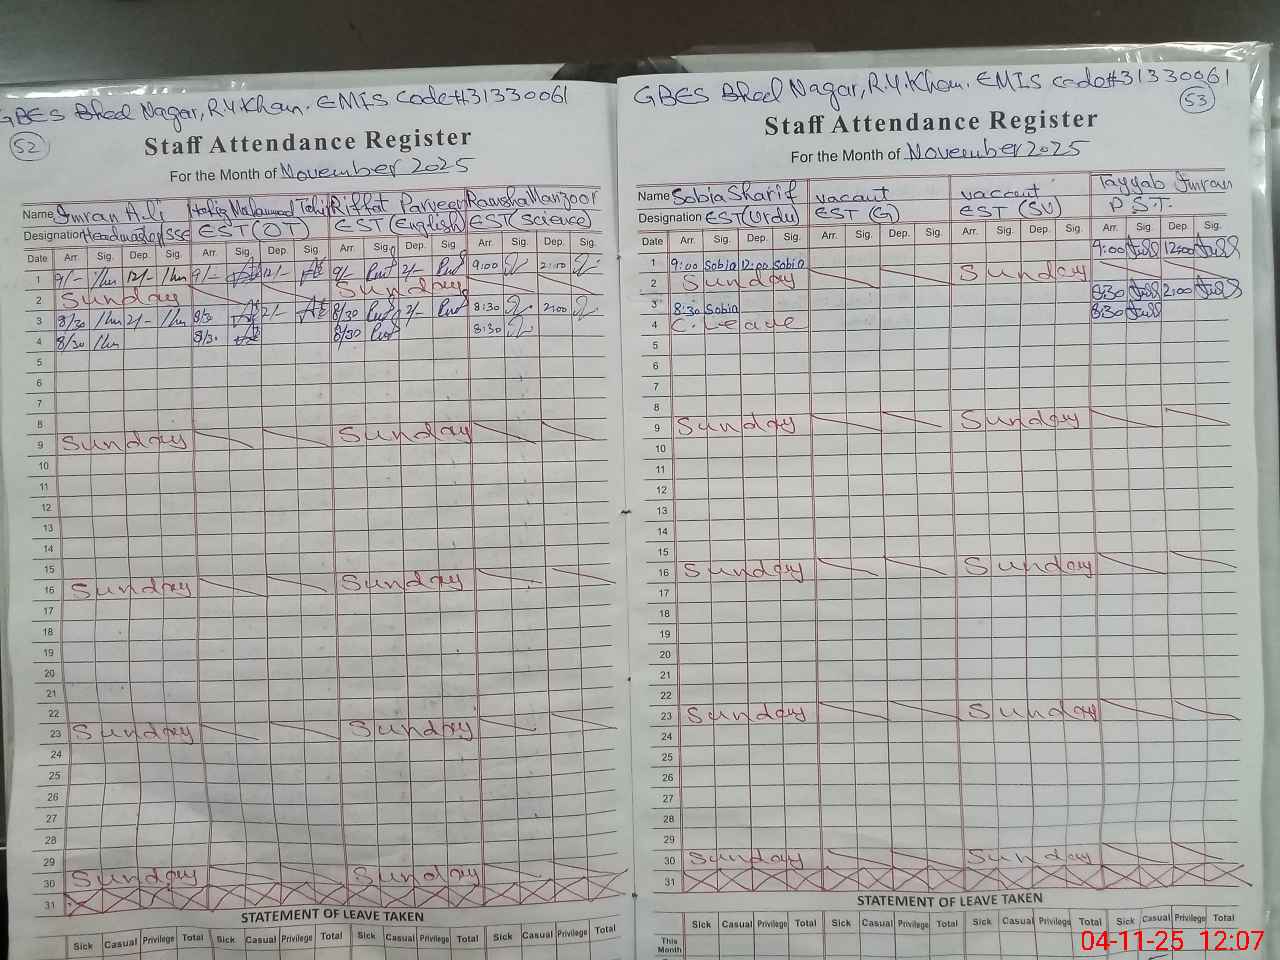 GBES Bhed Nagar, R.Y.Khan. EMIS Code#31330061
52
Staff Attendance Register
For the Month of November 2025
Name Imran Ali Hafiz Mohammad Riffat Parveen Manzoor
Designation Headmaster SSE EST (OT) EST (English) EST (Science)
Date Arr. Sig. Dep. Sig. Arr. Sig. Dep. Sig. Arr. Sig. Dep. Sig. Arr. Sig. Dep. Sig.
1 9/- 12/- 9/- 12/- 9/- 2/- 9:00 2:00
2 Sunday Sunday
3 8/30 2/- 8/30 2/- 8/30 2/- 8:30 2:00
4 8/30 8/30 8/30 8:30
5
6
7
8
9 Sunday Sunday
10
11
12
13
14
15
16 Sunday Sunday
17
18
19
20
21
22
23 Sunday Sunday
24
25
26
27
28
29
30 Sunday Sunday
31
STATEMENT OF LEAVE TAKEN
Sick Casual Privilege Total Sick Casual Privilege Total Sick Casual Privilege Total Sick Casual Privilege Total
GBES Bhed Nagar, R.Y.Khan. EMIS Code#31330061
53
Staff Attendance Register
For the Month of November 2025
Name Sobia Sharif vacant vacant Tayyab Imran
Designation EST (Urdu) EST (G) EST (SV) P.S.T.
Date Arr. Sig. Dep. Sig. Arr. Sig. Dep. Sig. Arr. Sig. Dep. Sig. Arr. Sig. Dep. Sig.
1 9:00 Sobia 12:00 Sobia 9:00 12:00
2 Sunday Sunday
3 8:30 Sobia 8:30 2:00
4 C. Leave 8:30
5
6
7
8
9 Sunday Sunday
10
11
12
13
14
15
16 Sunday Sunday
17
18
19
20
21
22
23 Sunday Sunday
24
25
26
27
28
29
30 Sunday Sunday
31
STATEMENT OF LEAVE TAKEN
Sick Casual Privilege Total Sick Casual Privilege Total Sick Casual Privilege Total Sick Casual Privilege Total
This Month
04-11-25 12:07